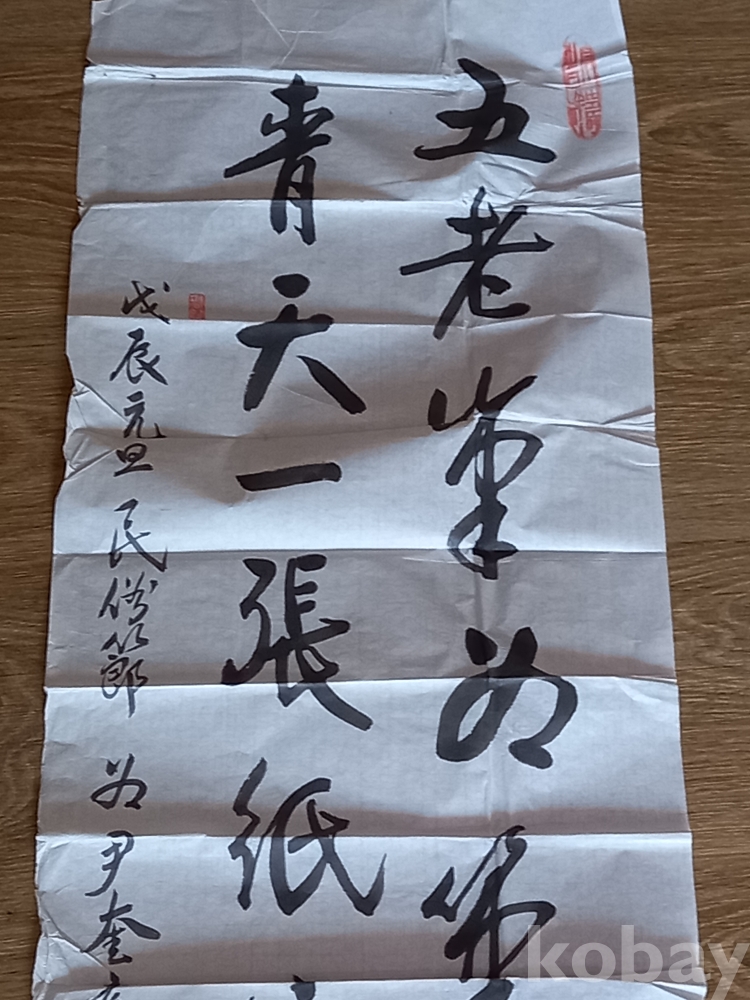 五老峯為筆
青天一張紙
戊辰元旦 民俗節 為尹奎
kobay